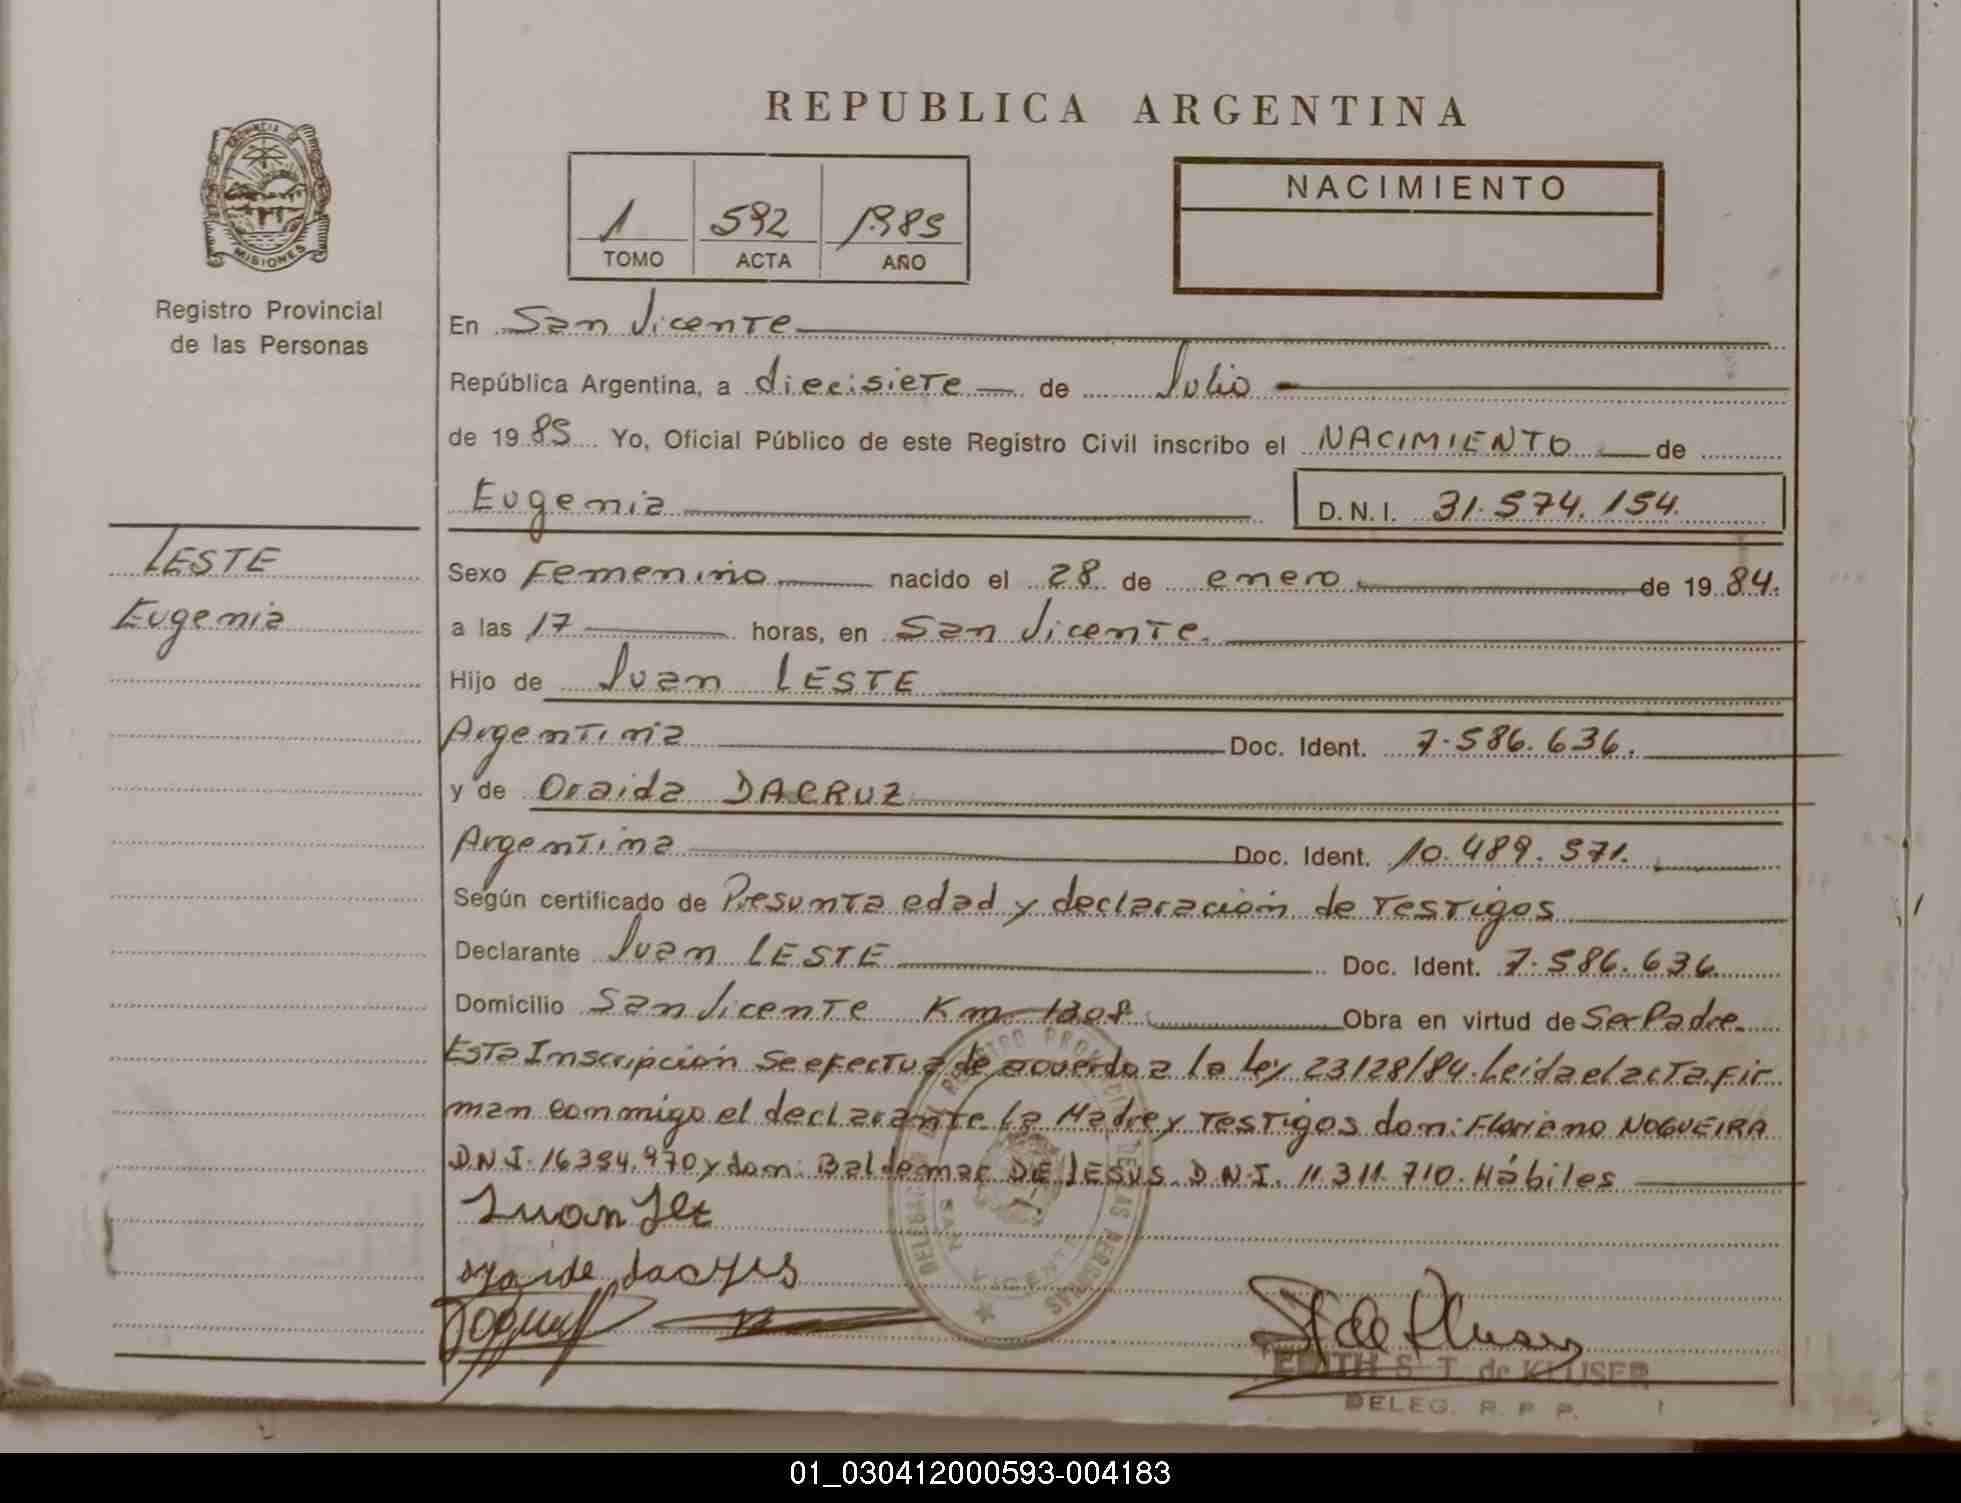 REPUBLICA ARGENTINA
PROVINCIA DE
MISIONES
Registro Provincial
de las Personas
1 592 1985
TOMO ACTA AÑO
NACIMIENTO
En San Vicente
República Argentina, a diecisiete de Julio
de 1985 Yo, Oficial Público de este Registro Civil inscribo el NACIMIENTO de
Eugenia D.N.I. 31.574.154.
LESTE
Eugenia
Sexo Femenino nacido el 28 de enero de 1984.
a las 17 horas, en San Vicente.
Hijo de Juan LESTE
Argentina Doc. Ident. 7.586.636.
y de Oraida DACRUZ
Argentina Doc. Ident. 10.489.571.
Según certificado de Presunta edad y declaración de Testigos
Declarante Juan LESTE Doc. Ident. 7.586.636
Domicilio San Vicente Km 1208 Obra en virtud de Ser Padre.
Esta Inscripción se efectua de acuerdo a la Ley 23128/84. Leida el acta, fir
man conmigo el declarante La Madre y Testigos don: Floriano NOGUEIRA
D.N.I. 16.394.970 y don: Baldemar DE JESUS. D.N.I. 11.311.710. Hábiles
Juan
EDITH S. T. de KLUSER
DELEG. R. P. P.
01_030412000593-004183